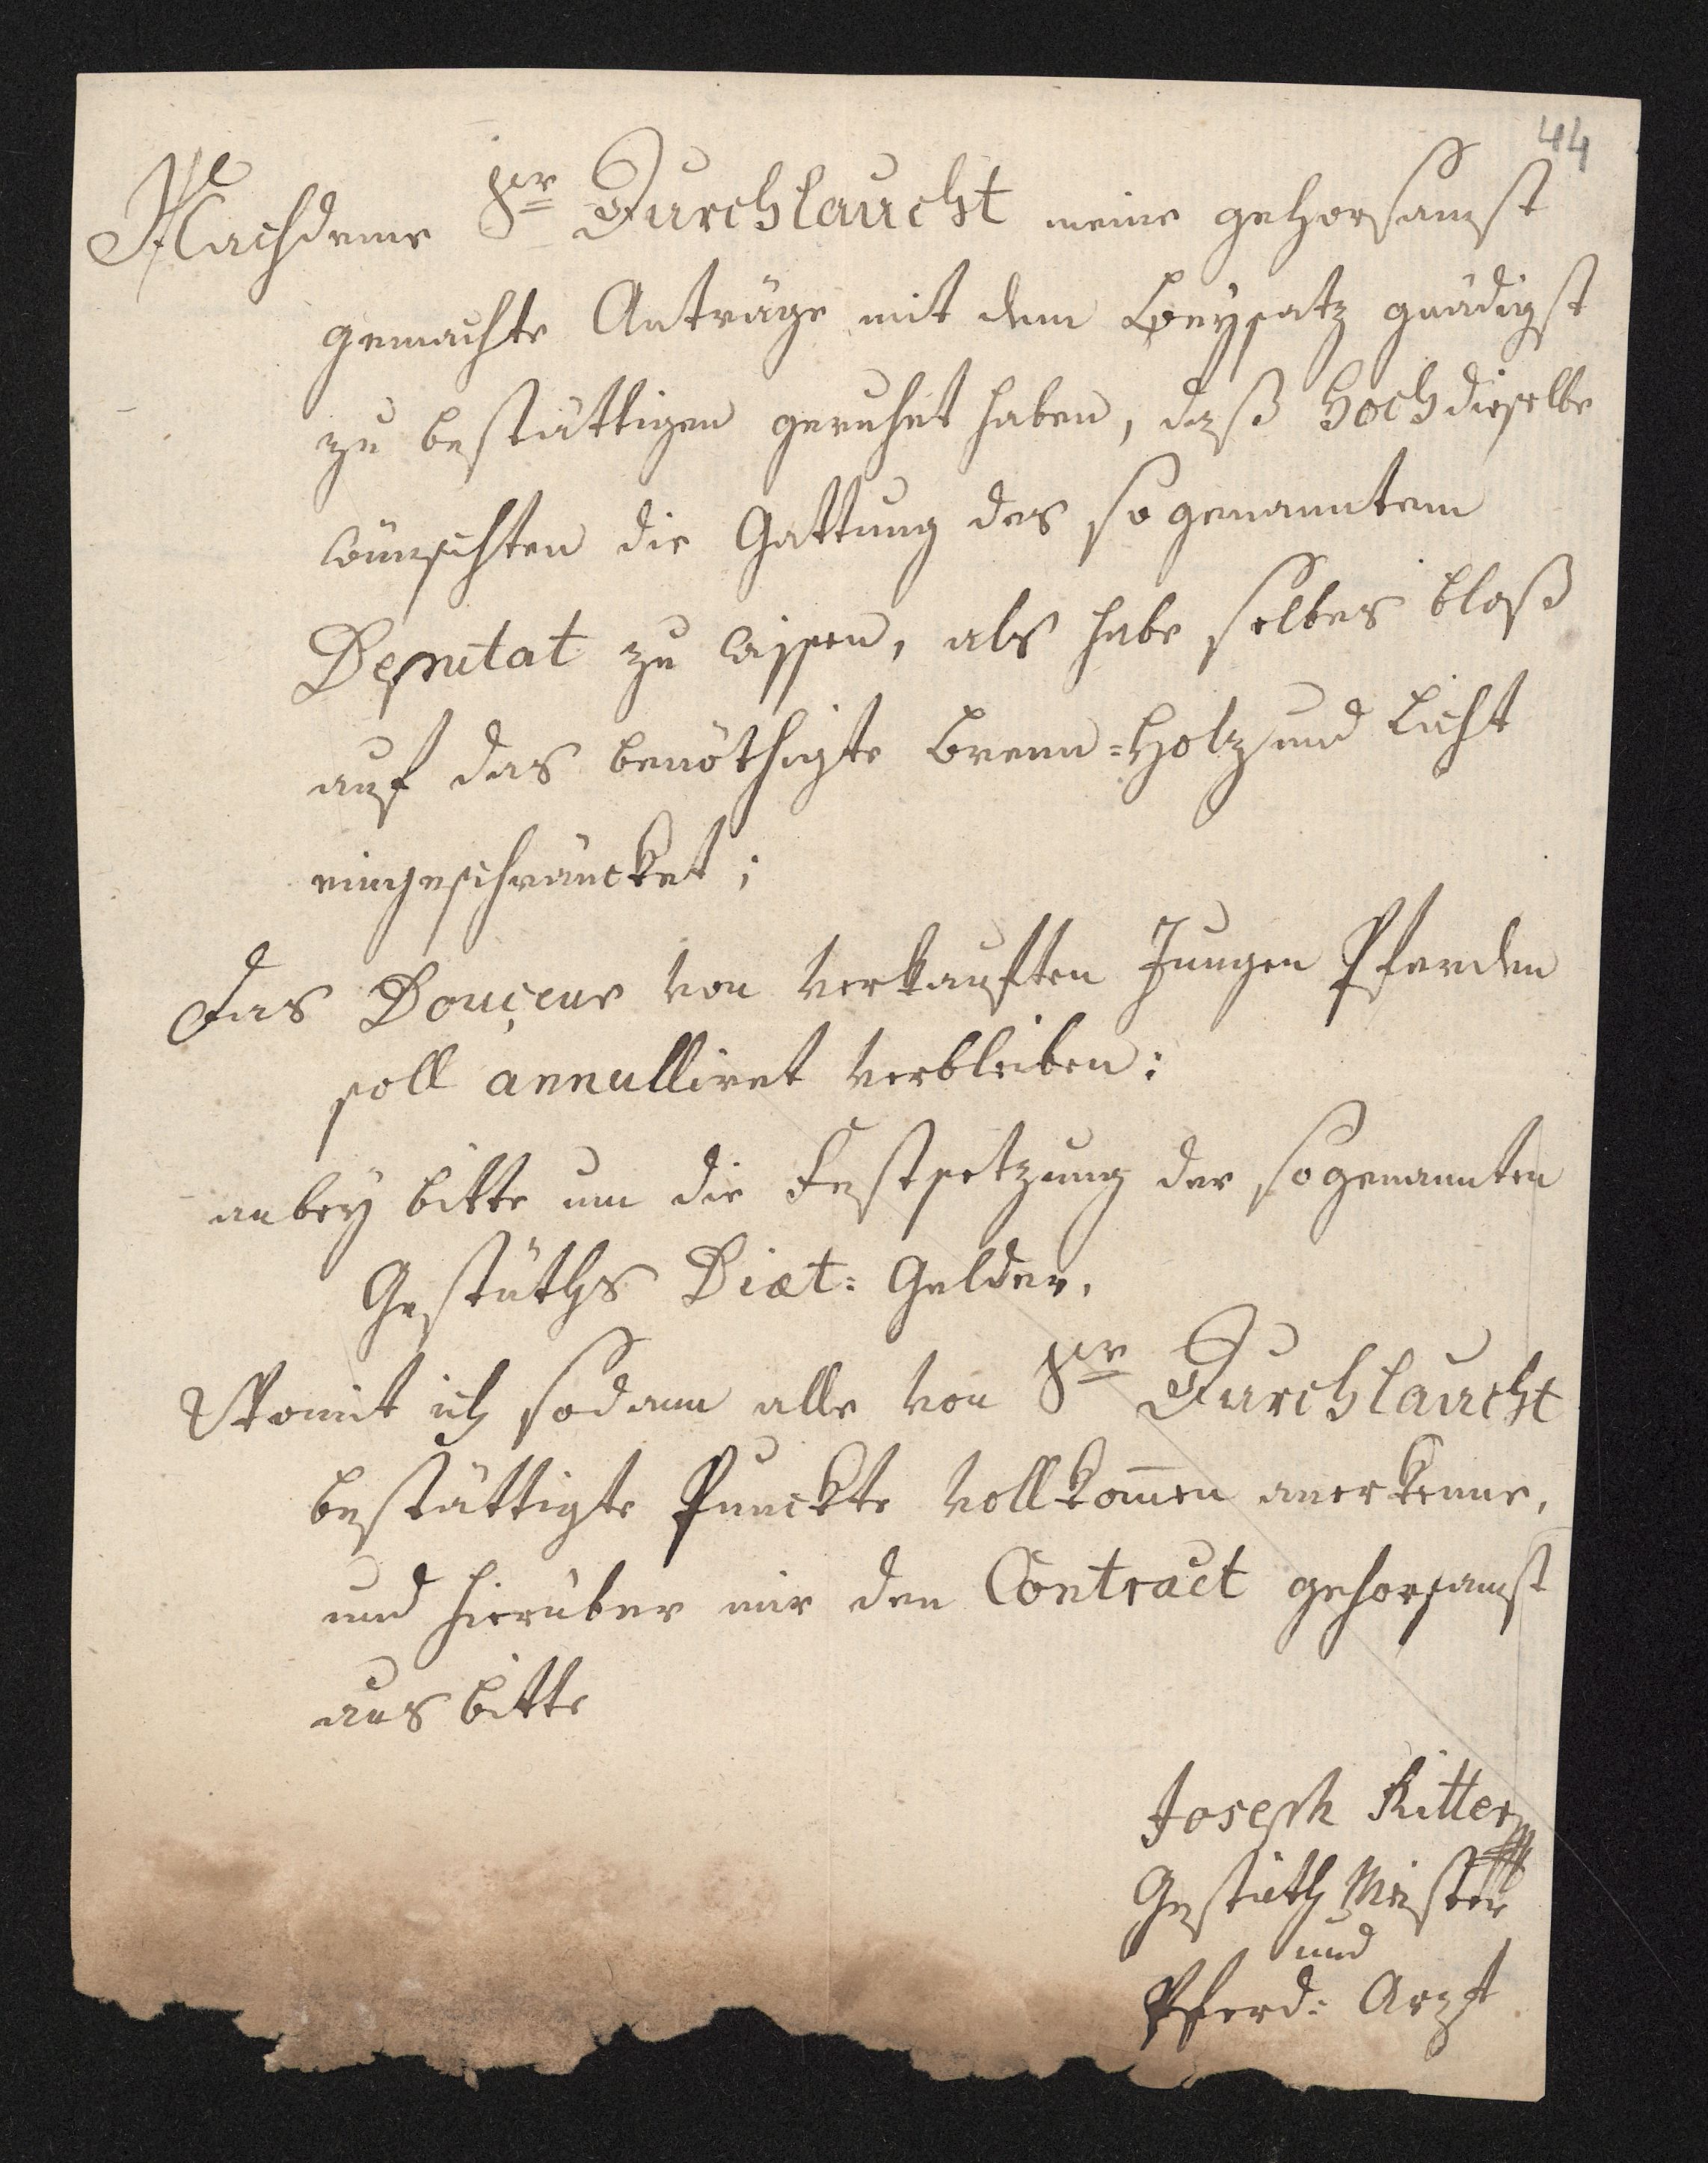 44
Nachdeme Ser Durchlaucht meine gehorsamst
gemachte Anträge mit dem Beysatz gnädigst
zu bestättigen geruhet haben, daß Hochdieselbe
wünschten die Gattung des sogenanntem
Deputat zu wissen, als habe selbes bloß
auf das benöthigte Brenn=Holz und Licht
eingeschräncket;
Das Douçeur von verkauften Jungen Pferden
soll annulliret verbleiben:
anbey bitte um die Festsetzung der sogenannten
Gestüths Diæt: Gelder.
Womit ich sodann alle von Ser Durchlaucht
bestättigte Punckte vollkom̄en anerkenne,
und hierüber mir den Contract gehorsamst
ausbitte
Joseph Ritter
Gestüth Meister
und
Pferd: Arzt